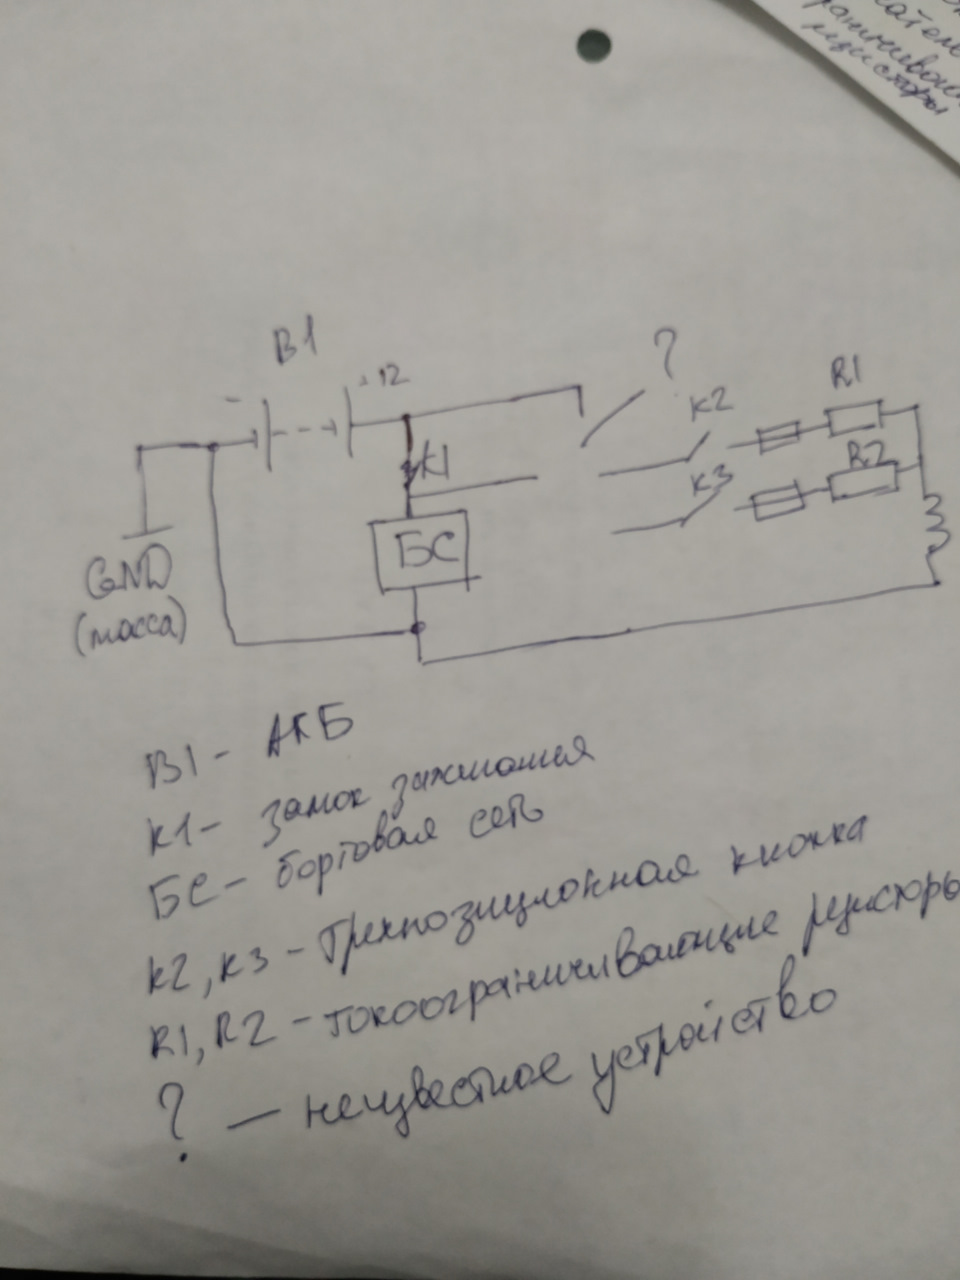 ранничиваю
резисторы
B1
-
+12
?
K2
R1
K1
R2
K3
БС
GND
(масса)
B1 - АКБ
K1 - замок зажигания
БС - бортовая сеть
K2, K3 - трехпозиционная кнопка
R1, R2 - токоограничивающие резисторы
? - неизвестное устройство